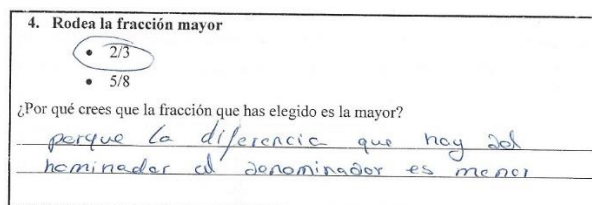 4. Rodea la fracción mayor
• 2/3
• 5/8
¿Por qué crees que la fracción que has elegido es la mayor?
porque la diferencia que hay del
nominador al denominador es menor